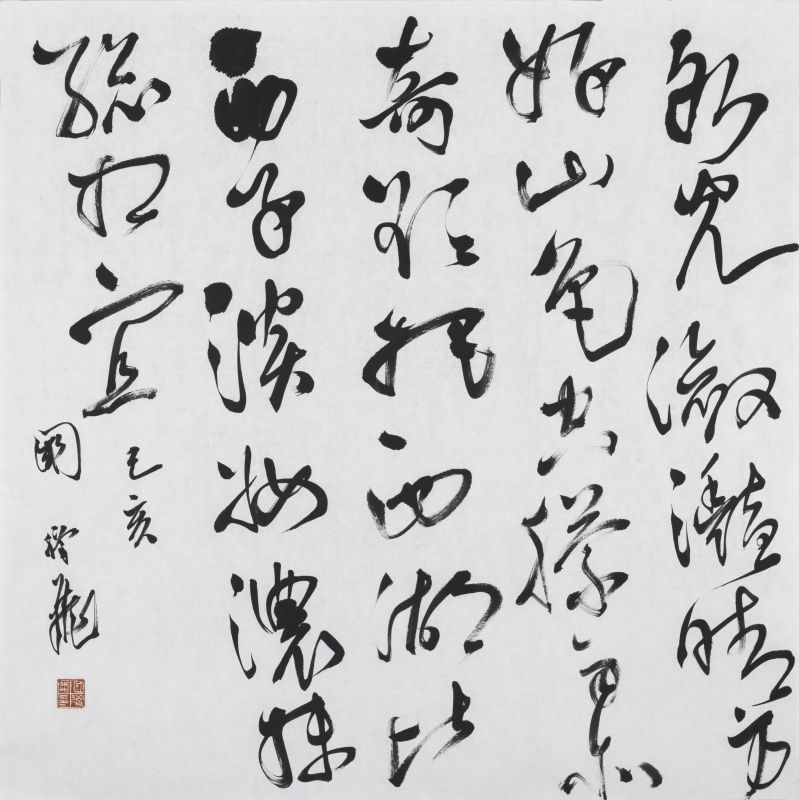 水光瀲灧晴方
好山色空濛雨亦
奇欲把西湖比
西子淡妝濃抹
總相宜
己亥
國